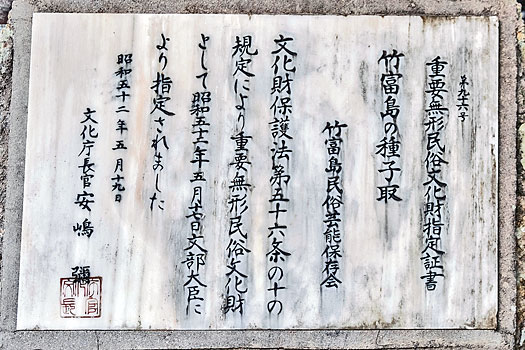 第九十六号
重要無形民俗文化財指定証書
竹富島の種子取
竹富島民俗芸能保存会
文化財保護法第五十六条の十の
規定により重要無形民俗文化財
として昭和五十二年五月十七日文部大臣に
より指定されました
昭和五十二年五月十九日
文化庁長官安嶋彌